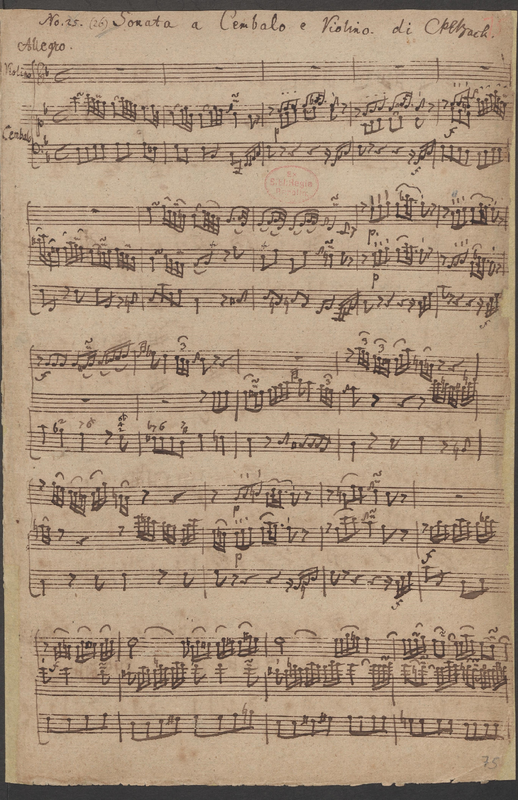 No. 25. (26) Sonata a Cembalo e Violino. di CPEBach.
Allegro.
Violino
Cembalo
p
f
p.
p
f
f
p
p
f
f
75